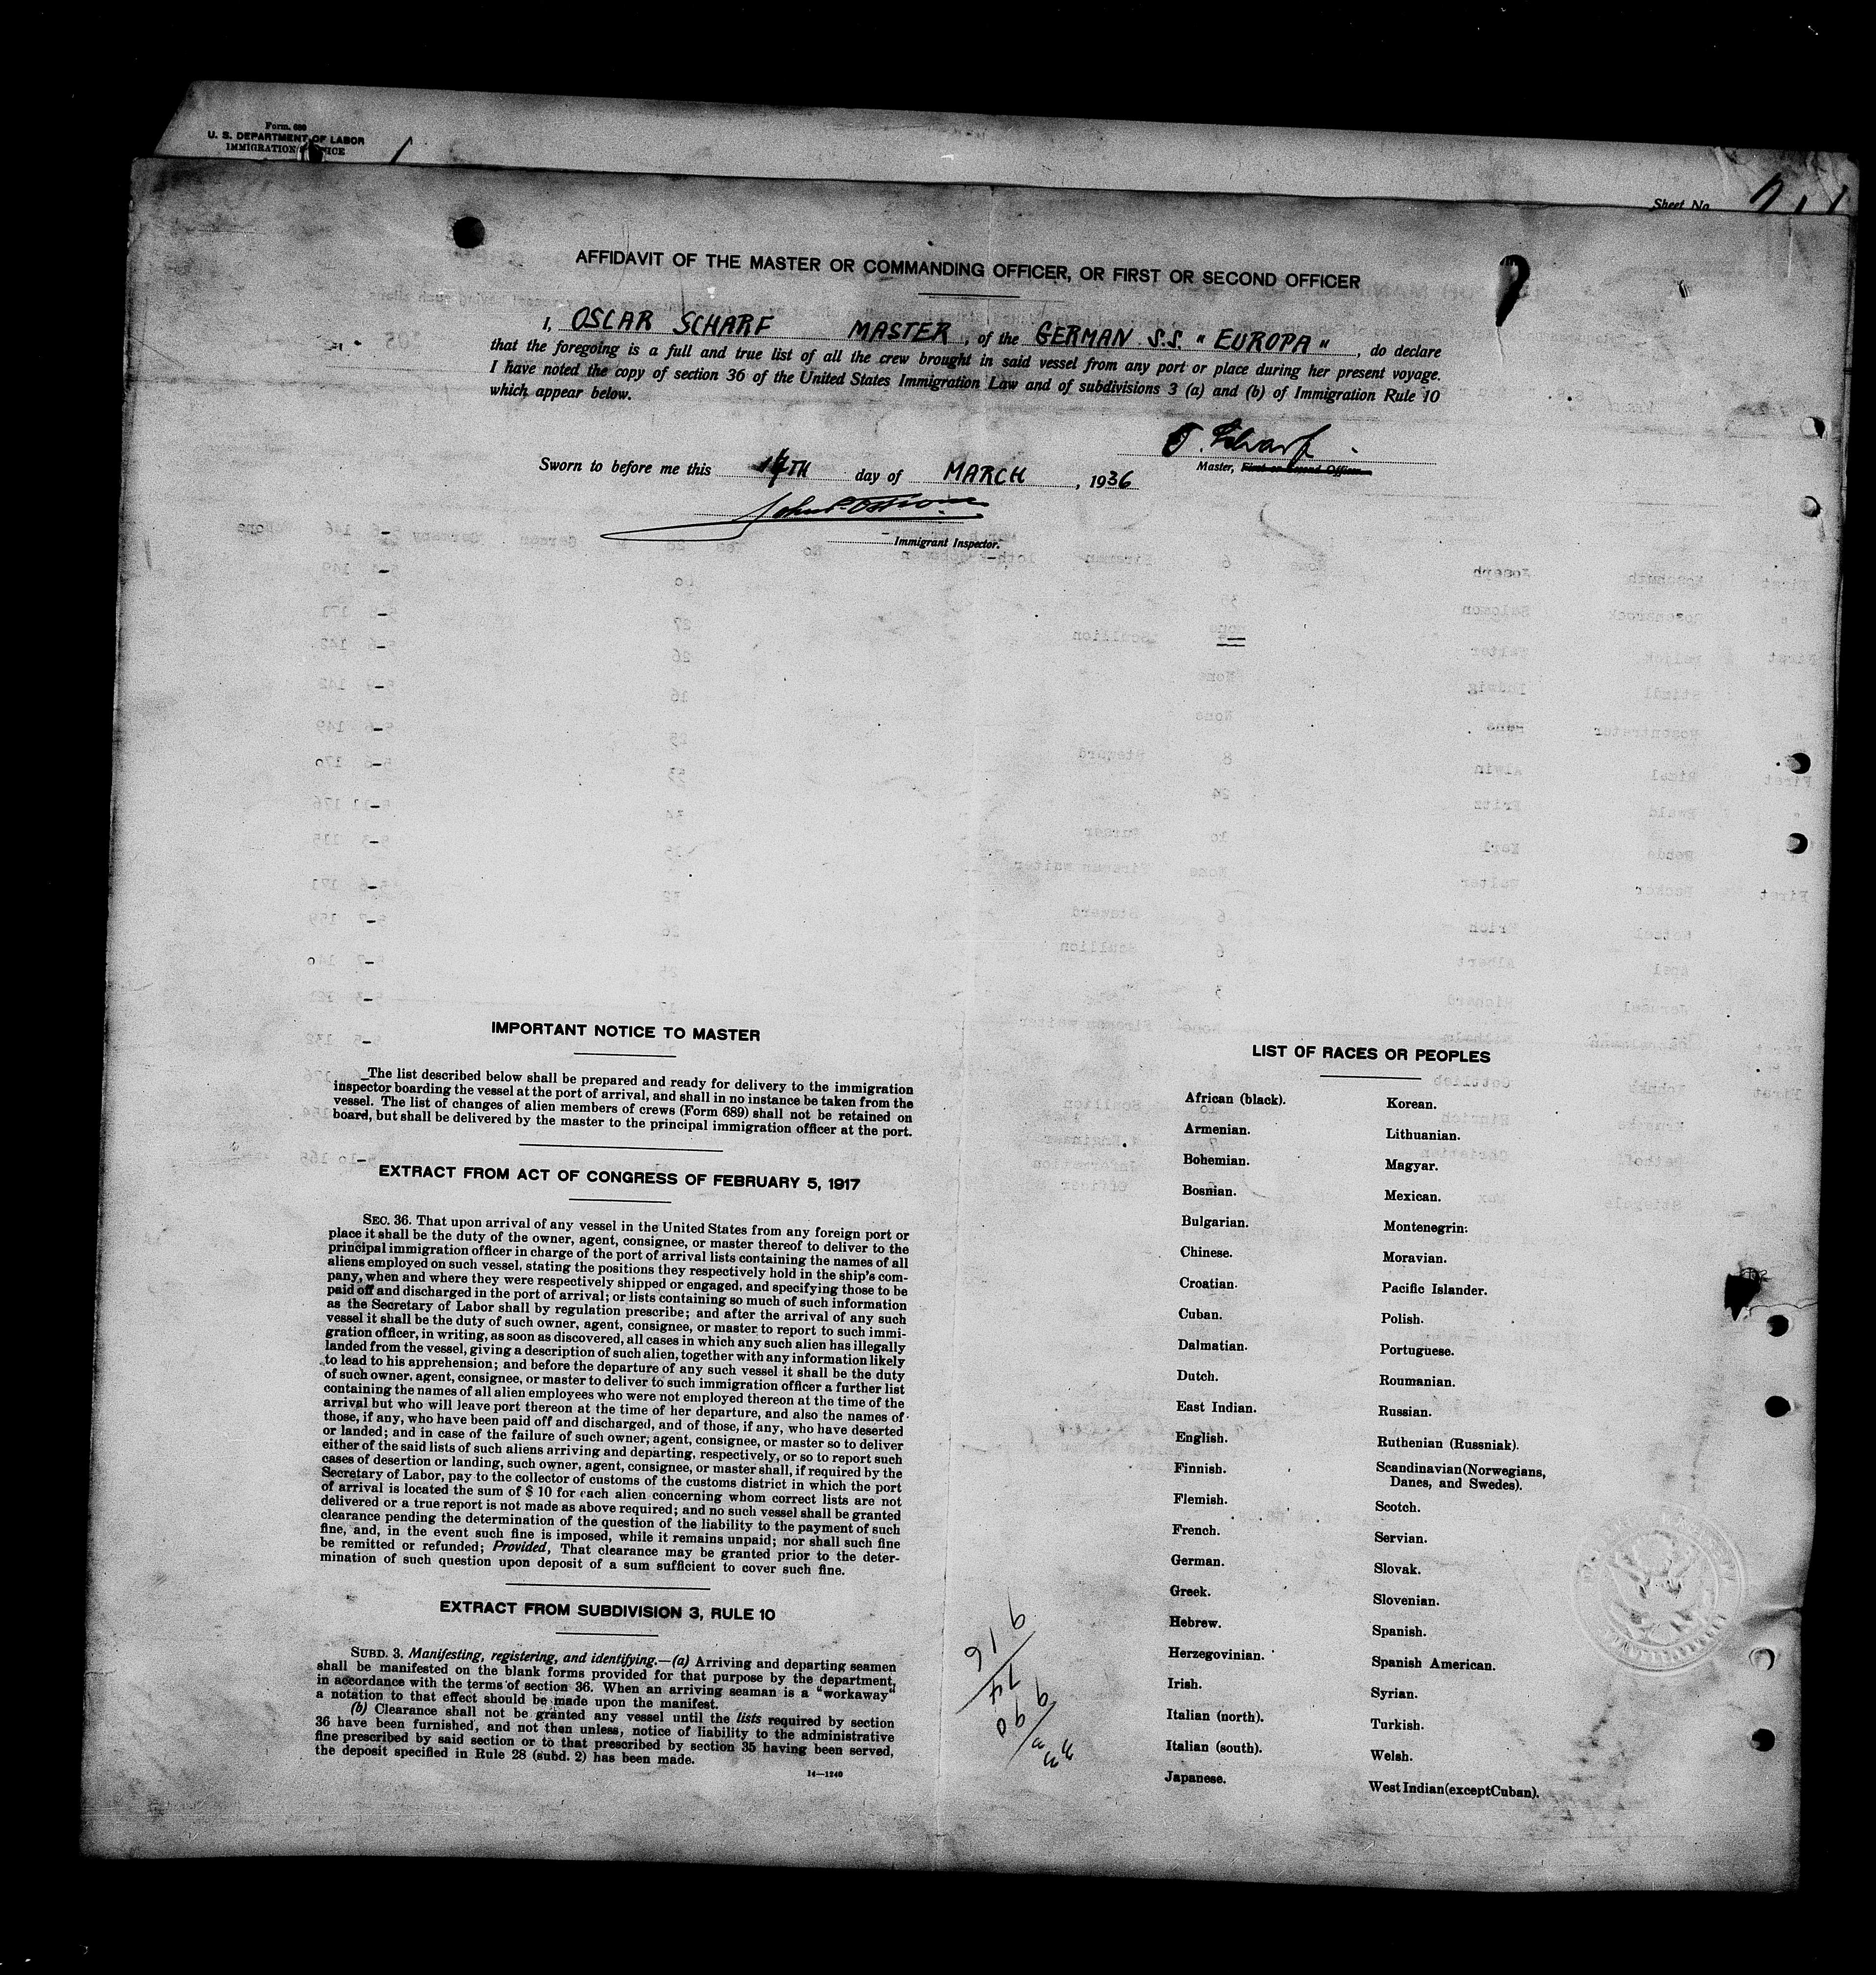 Form 689
U. S. DEPARTMENT OF LABOR
IMMIGRATION
Sheet No.
AFFIDAVIT OF THE MASTER OR COMMANDING OFFICER, OR FIRST OR SECOND OFFICER
I, OSCAR SCHARF MASTER, of the GERMAN S.S. "EUROPA", do declare
that the foregoing is a full and true list of all the crew brought in said vessel from any port or place during her present voyage.
I have noted the copy of section 36 of the United States Immigration Law and of subdivisions 3 (a) and (b) of Immigration Rule 10
which appear below.
O. Scharf
Master, First or Second Officer
Sworn to before me this day of MARCH, 1936
Immigrant Inspector.
IMPORTANT NOTICE TO MASTER
The list described below shall be prepared and ready for delivery to the immigration
inspector boarding the vessel at the port of arrival, and shall in no instance be taken from the
vessel. The list of changes of alien members of crews (Form 689) shall not be retained on
board, but shall be delivered by the master to the principal immigration officer at the port.
EXTRACT FROM ACT OF CONGRESS OF FEBRUARY 5, 1917
SEC. 36. That upon arrival of any vessel in the United States from any foreign port or
place it shall be the duty of the owner, agent, consignee, or master thereof to deliver to the
principal immigration officer in charge of the port of arrival lists containing the names of all
aliens employed on such vessel, stating the positions they respectively hold in the ship's com-
pany, when and where they were respectively shipped or engaged, and specifying those to be
paid off and discharged in the port of arrival; or lists containing so much of such information
as the Secretary of Labor shall by regulation prescribe; and after the arrival of any such
vessel it shall be the duty of such owner, agent, consignee, or master to report to such immi-
gration officer, in writing, as soon as discovered, all cases in which any such alien has illegally
landed from the vessel, giving a description of such alien, together with any information likely
to lead to his apprehension; and before the departure of any such vessel it shall be the duty
of such owner, agent, consignee, or master to deliver to such immigration officer a further list
containing the names of all alien employees who were not employed thereon at the time of the
arrival but who will leave port thereon at the time of her departure, and also the names of
those, if any, who have been paid off and discharged, and of those, if any, who have deserted
or landed; and in case of the failure of such owner; agent, consignee, or master so to deliver
either of the said lists of such aliens arriving and departing, respectively, or so to report such
cases of desertion or landing, such owner, agent, consignee, or master shall, if required by the
Secretary of Labor, pay to the collector of customs of the customs district in which the port
of arrival is located the sum of $ 10 for each alien concerning whom correct lists are not
delivered or a true report is not made as above required; and no such vessel shall be granted
clearance pending the determination of the question of the liability to the payment of such
fine, and, in the event such fine is imposed, while it remains unpaid; nor shall such fine
be remitted or refunded; Provided, That clearance may be granted prior to the deter-
mination of such question upon deposit of a sum sufficient to cover such fine.
EXTRACT FROM SUBDIVISION 3, RULE 10
SUBD. 3. Manifesting, registering, and identifying.—(a) Arriving and departing seamen
shall be manifested on the blank forms provided for that purpose by the department,
in accordance with the terms of section 36. When an arriving seaman is a "workaway"
a notation to that effect should be made upon the manifest.
(b) Clearance shall not be granted any vessel until the lists required by section
36 have been furnished, and not then unless, notice of liability to the administrative
fine prescribed by said section or to that prescribed by section 35 having been served,
the deposit specified in Rule 28 (subd. 2) has been made.
14—1240
LIST OF RACES OR PEOPLES
African (black).
Armenian.
Bohemian.
Bosnian.
Bulgarian.
Chinese.
Croatian.
Cuban.
Dalmatian.
Dutch.
East Indian.
English.
Finnish.
Flemish.
French.
German.
Greek.
Hebrew.
Herzegovinian.
Irish.
Italian (north).
Italian (south).
Japanese.
Korean.
Lithuanian.
Magyar.
Mexican.
Montenegrin.
Moravian.
Pacific Islander.
Polish.
Portuguese.
Roumanian.
Russian.
Ruthenian (Russniak).
Scandinavian (Norwegians,
Danes, and Swedes).
Scotch.
Servian.
Slovak.
Slovenian.
Spanish.
Spanish American.
Syrian.
Turkish.
Welsh.
West Indian (except Cuban).